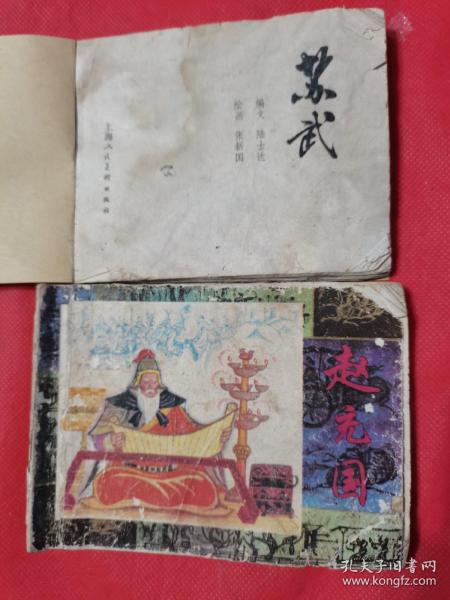 苏武
编文 陆士达
绘画 张新国
上海人民美术出版社
赵充国
孔夫子旧书网
www.kongfz.com